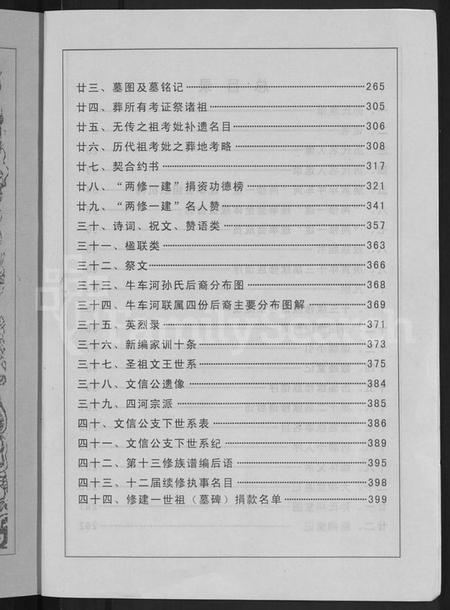 廿三、墓图及墓铭记 265
廿四、葬所有考证祭诸祖 305
廿五、无传之祖考妣补遗名目 306
廿六、历代祖考妣之葬地考略 308
廿七、契合约书 317
廿八、“两修一建”捐资功德榜 321
廿九、“两修一建”名人赞 341
三十、诗词、祝文、赞语类 357
三十一、楹联类 363
三十二、祭文 366
三十三、牛车河孙氏后裔分布图 368
三十四、牛车河联属四份后裔主要分布图解 369
三十五、英烈录 371
三十六、新编家训十条 373
三十七、圣祖文王世系 375
三十八、文信公遗像 384
三十九、四河宗派 385
四十、文信公支下世系表 386
四十一、文信公支下世系纪 389
四十二、第十三修族谱编后语 395
四十三、十二届续修执事名目 398
四十四、修建一世祖（墓碑）捐款名单 399